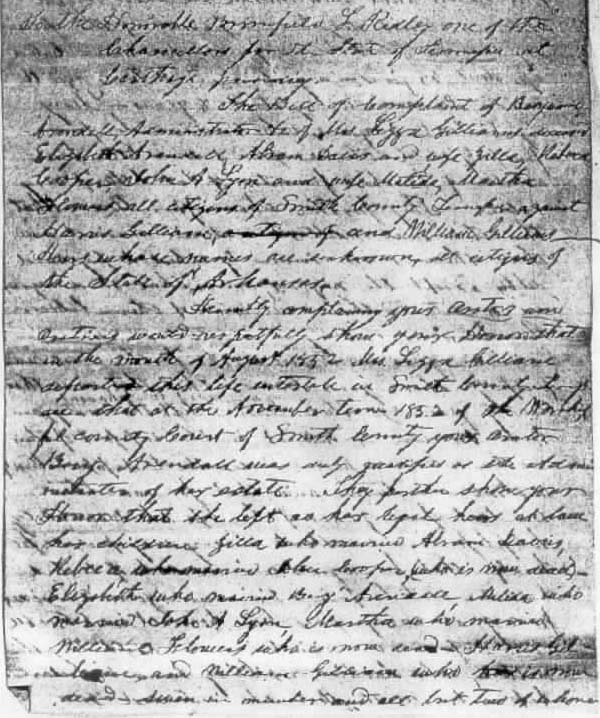 To the Honorable Bromfield L Ridley one of the
Chancellors for the State of Tennessee at
Carthage
The Bill of Complaint of Benjamin
Arendell Administrator &c of Mrs Lizza Gilliam deceased
Elizabeth Arendell, Abram Davis and wife Zilla, Rebecca
Cooper John A Lyon and wife Matilda, Martha
Flowers all citizens of Smith County Tennessee against
Harris Gilliam, and William Gilliams
Heirs whose names are unknown, all citizens of
the State of Arkansas
Humbly complaining your orator and
oratrixes would respectfully show your Honor that
in the month of August 1852 Mrs Lizza Gilliam
departed this life intestate in Smith County
that at the November term 1852 of the
County Court of Smith County your orator
Benj. Arendall was duly qualified as the admi
nistrator of her estate. They further show your
Honor that she left as her legal heirs at law
her children Zilla who married Abram Davis,
Rebecca who married Cooper (who is now dead)
Elizabeth who married Benj Arendall who
married John A Lyon Martha who married
William Flowers who is now dead Harris Gil
liam and William Gilliam who is now
dead - seven in number and all but two of whom